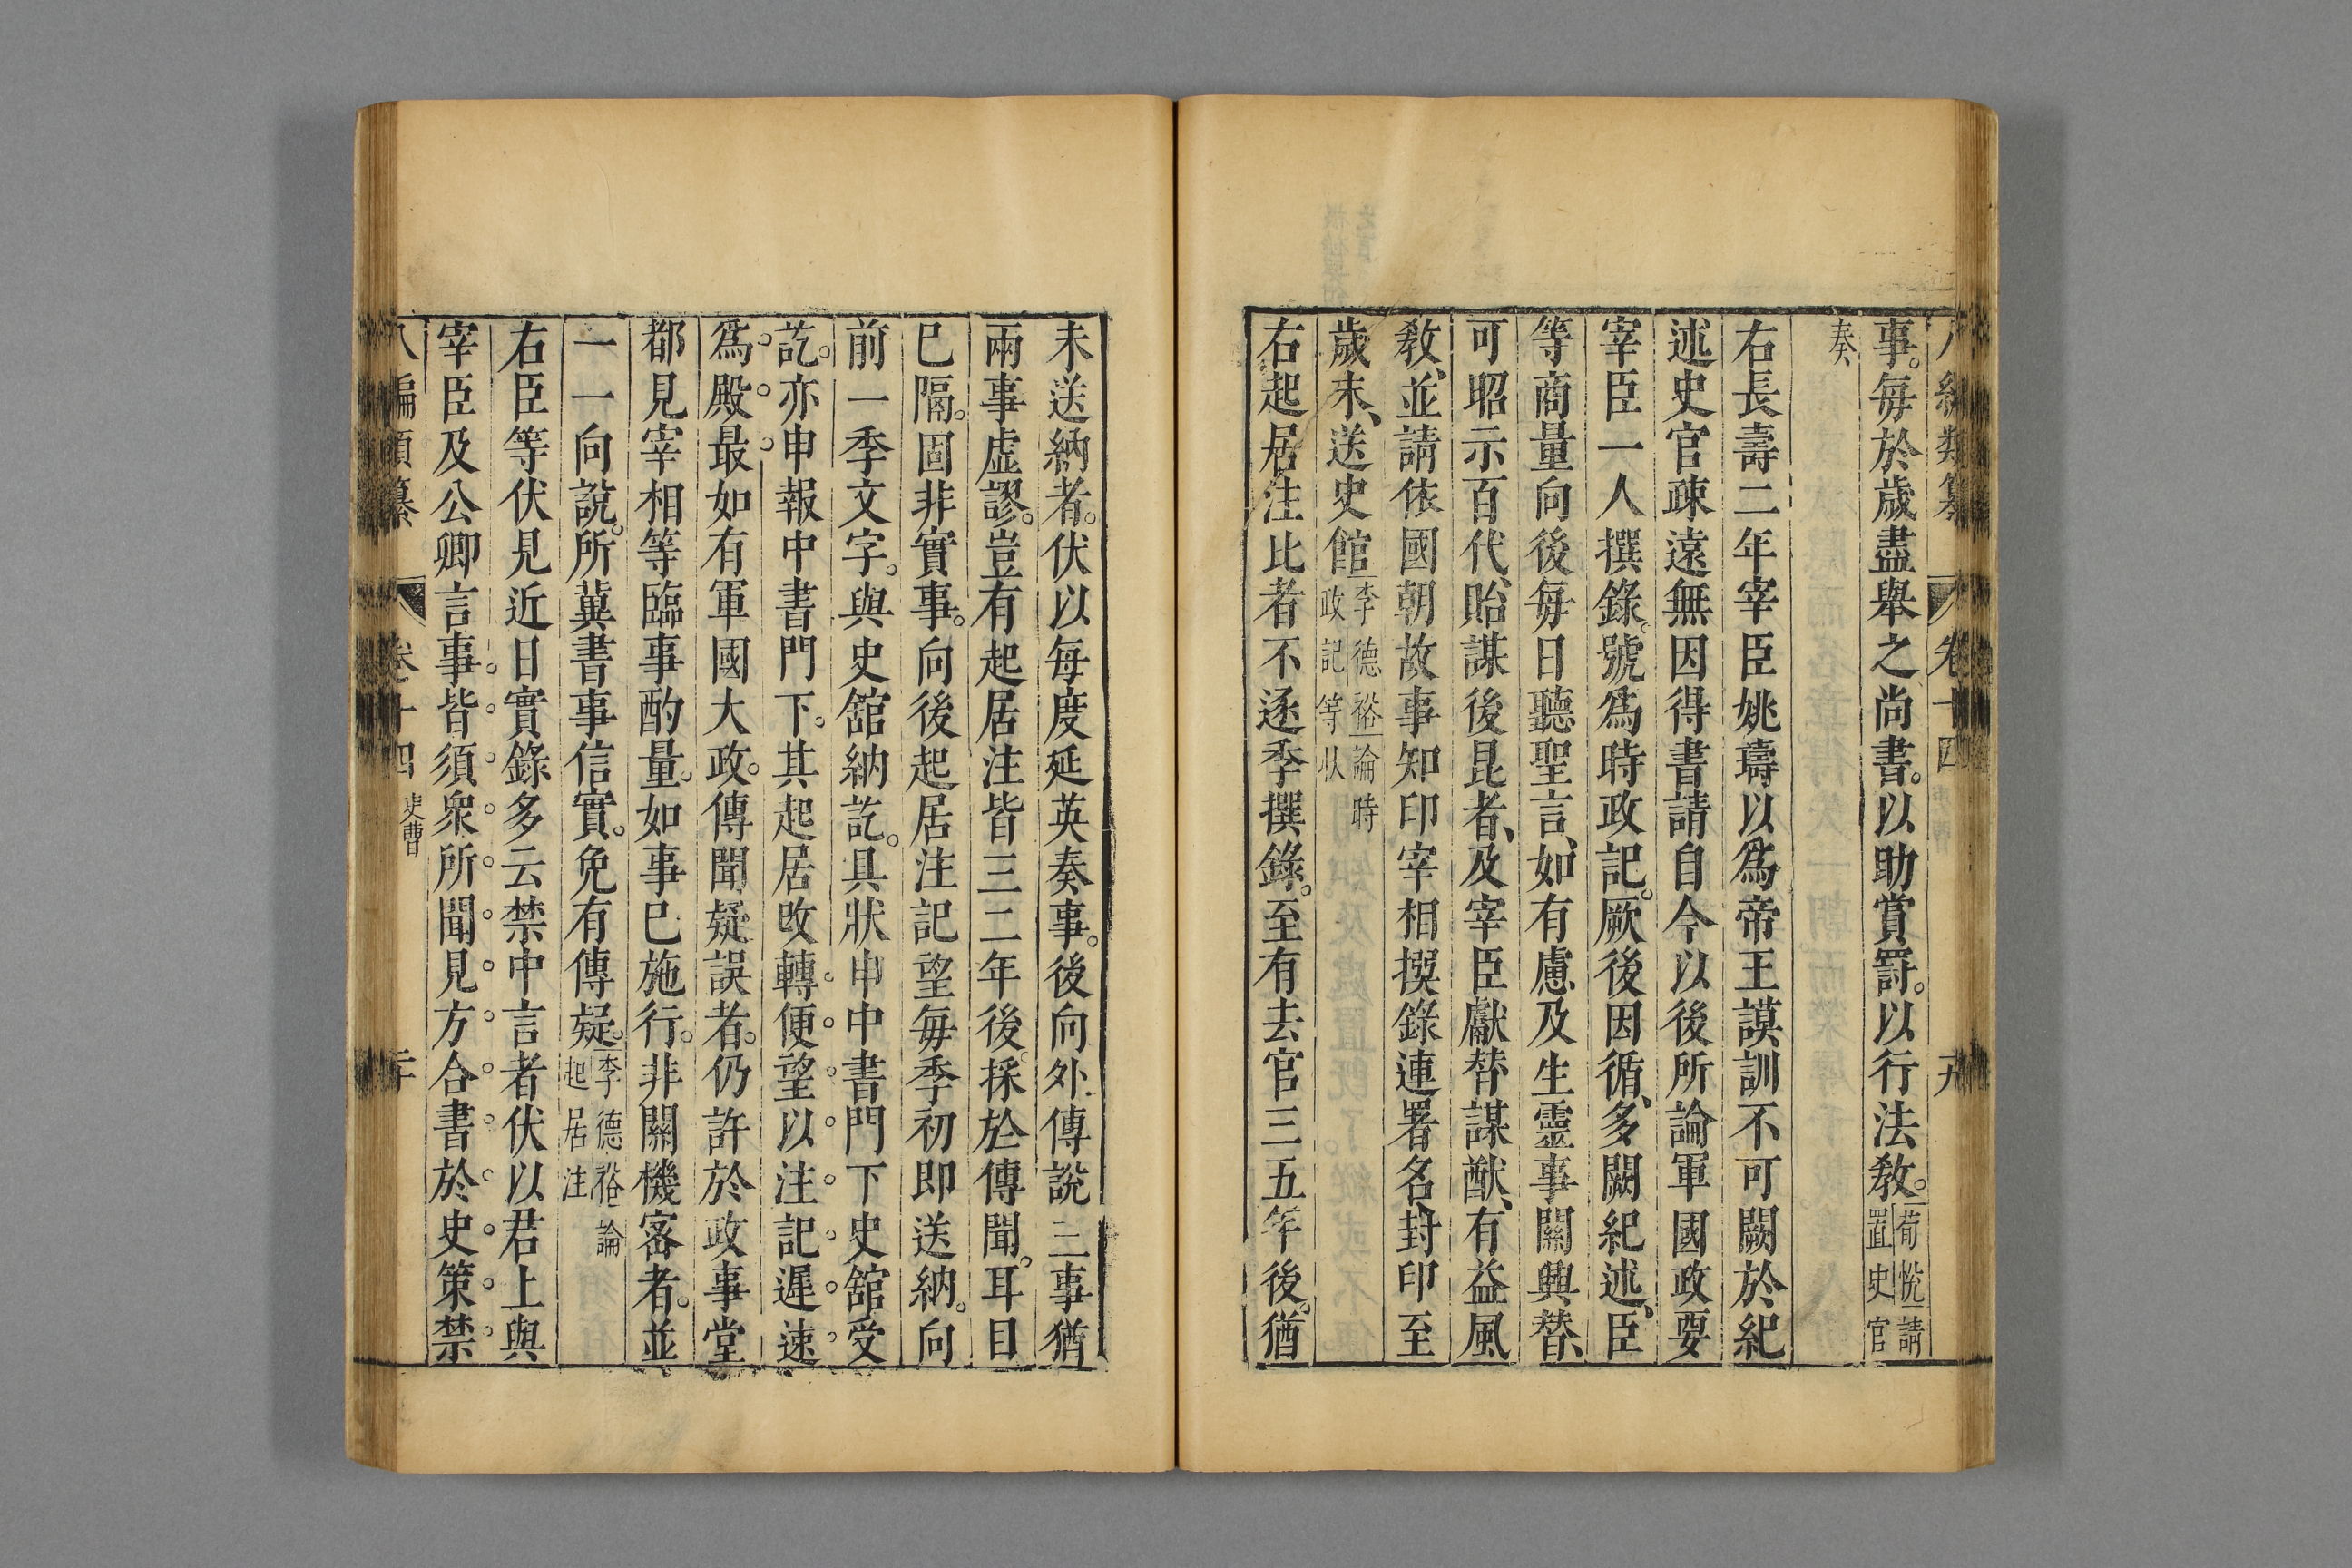 事。每於歲盡舉之尚書。以助賞罰。以行法教。荀恱請置史官
奏
右長壽二年宰臣姚璹以爲帝王謨訓不可闕於紀
述史官疎遠無因得書請自今以後所論軍國政要
宰臣一人撰錄。號爲時政記。厥後因循、多闕紀述、臣
等商量向後每日聽聖言、如有慮及生靈事關興替、
可昭示百代、貽謀後昆者、及宰臣獻替謀猷、有益風
教、並請依國朝故事知印宰相撰錄連署名、封印至
歲末、送史館李德裕論時政記等狀
右起居注比者不逐季撰錄。至有去官三五年後。猶
未送納者。伏以每度延英奏事。後向外傳說三事猶
兩事虛謬。豈有起居注皆三二年後採於傳聞。耳目
已隔。固非實事。向後起居注記望每季初即送納。向
前一季文字。與史舘納訖。具狀申中書門下史舘受
訖。亦申報中書門下。其起居改轉便望以注記遲速
爲殿最如有軍國大政。傳聞疑誤者。仍許於政事堂
都見宰相等臨事酌量。如事已施行。非關機密者。並
一一向說。所冀書事信實。免有傳疑。李德裕論起居注
右臣等伏見近日實錄多云禁中言者伏以君上與
宰臣及公卿言事。皆須衆所聞見方合書於史策禁
八編類纂 卷十四 史曹 二十